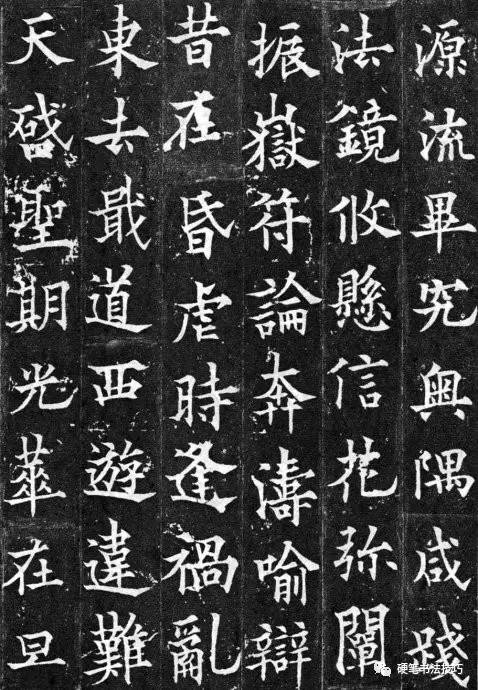 源流畢究奥隅咸踐
法鏡攸懸信花弥闡
振嶽符論奔濤喻辯
昔在昏虐時逢禍亂
東去戢道西遊違難
天啓聖期光華在旦
硬笔书法技巧